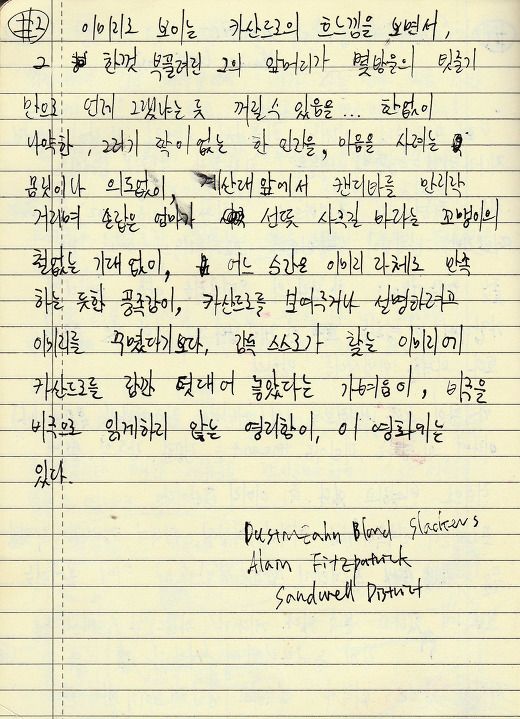 #2 이미지로 보이는 카산드로의 흐느낌을 보면서,
그 한껏 부풀려진 그의 앞머리가 몇방울의 빗줄기
만으로 언제 그랬냐는 듯 꺼질 수 있음을... 한없이
나약한, 그러기 짝이없는 한 인간을, 마음을 사려는
몸짓이나 의도없이, 계산대 앞에서 캔디바를 만지작
거리며 손잡은 엄마가 선뜻 사주길 바라는 꼬맹이의
철없는 기대 없이, 어느 순간은 이미지 자체로 만족
하는 듯한 골족감이, 카산드로를 보여주거나 설명하려고
이미지를 꾸몄다기보다, 감독 스스로가 찾는 이미지에
카산드로를 잠깐 덧대어 놓았다는 가벼움이, 비극을
비극으로 읽게하지 않는 영리함이, 이 영화에는
있다.
Blond Slackers
Alain Fitzpatrick
Sandwell District